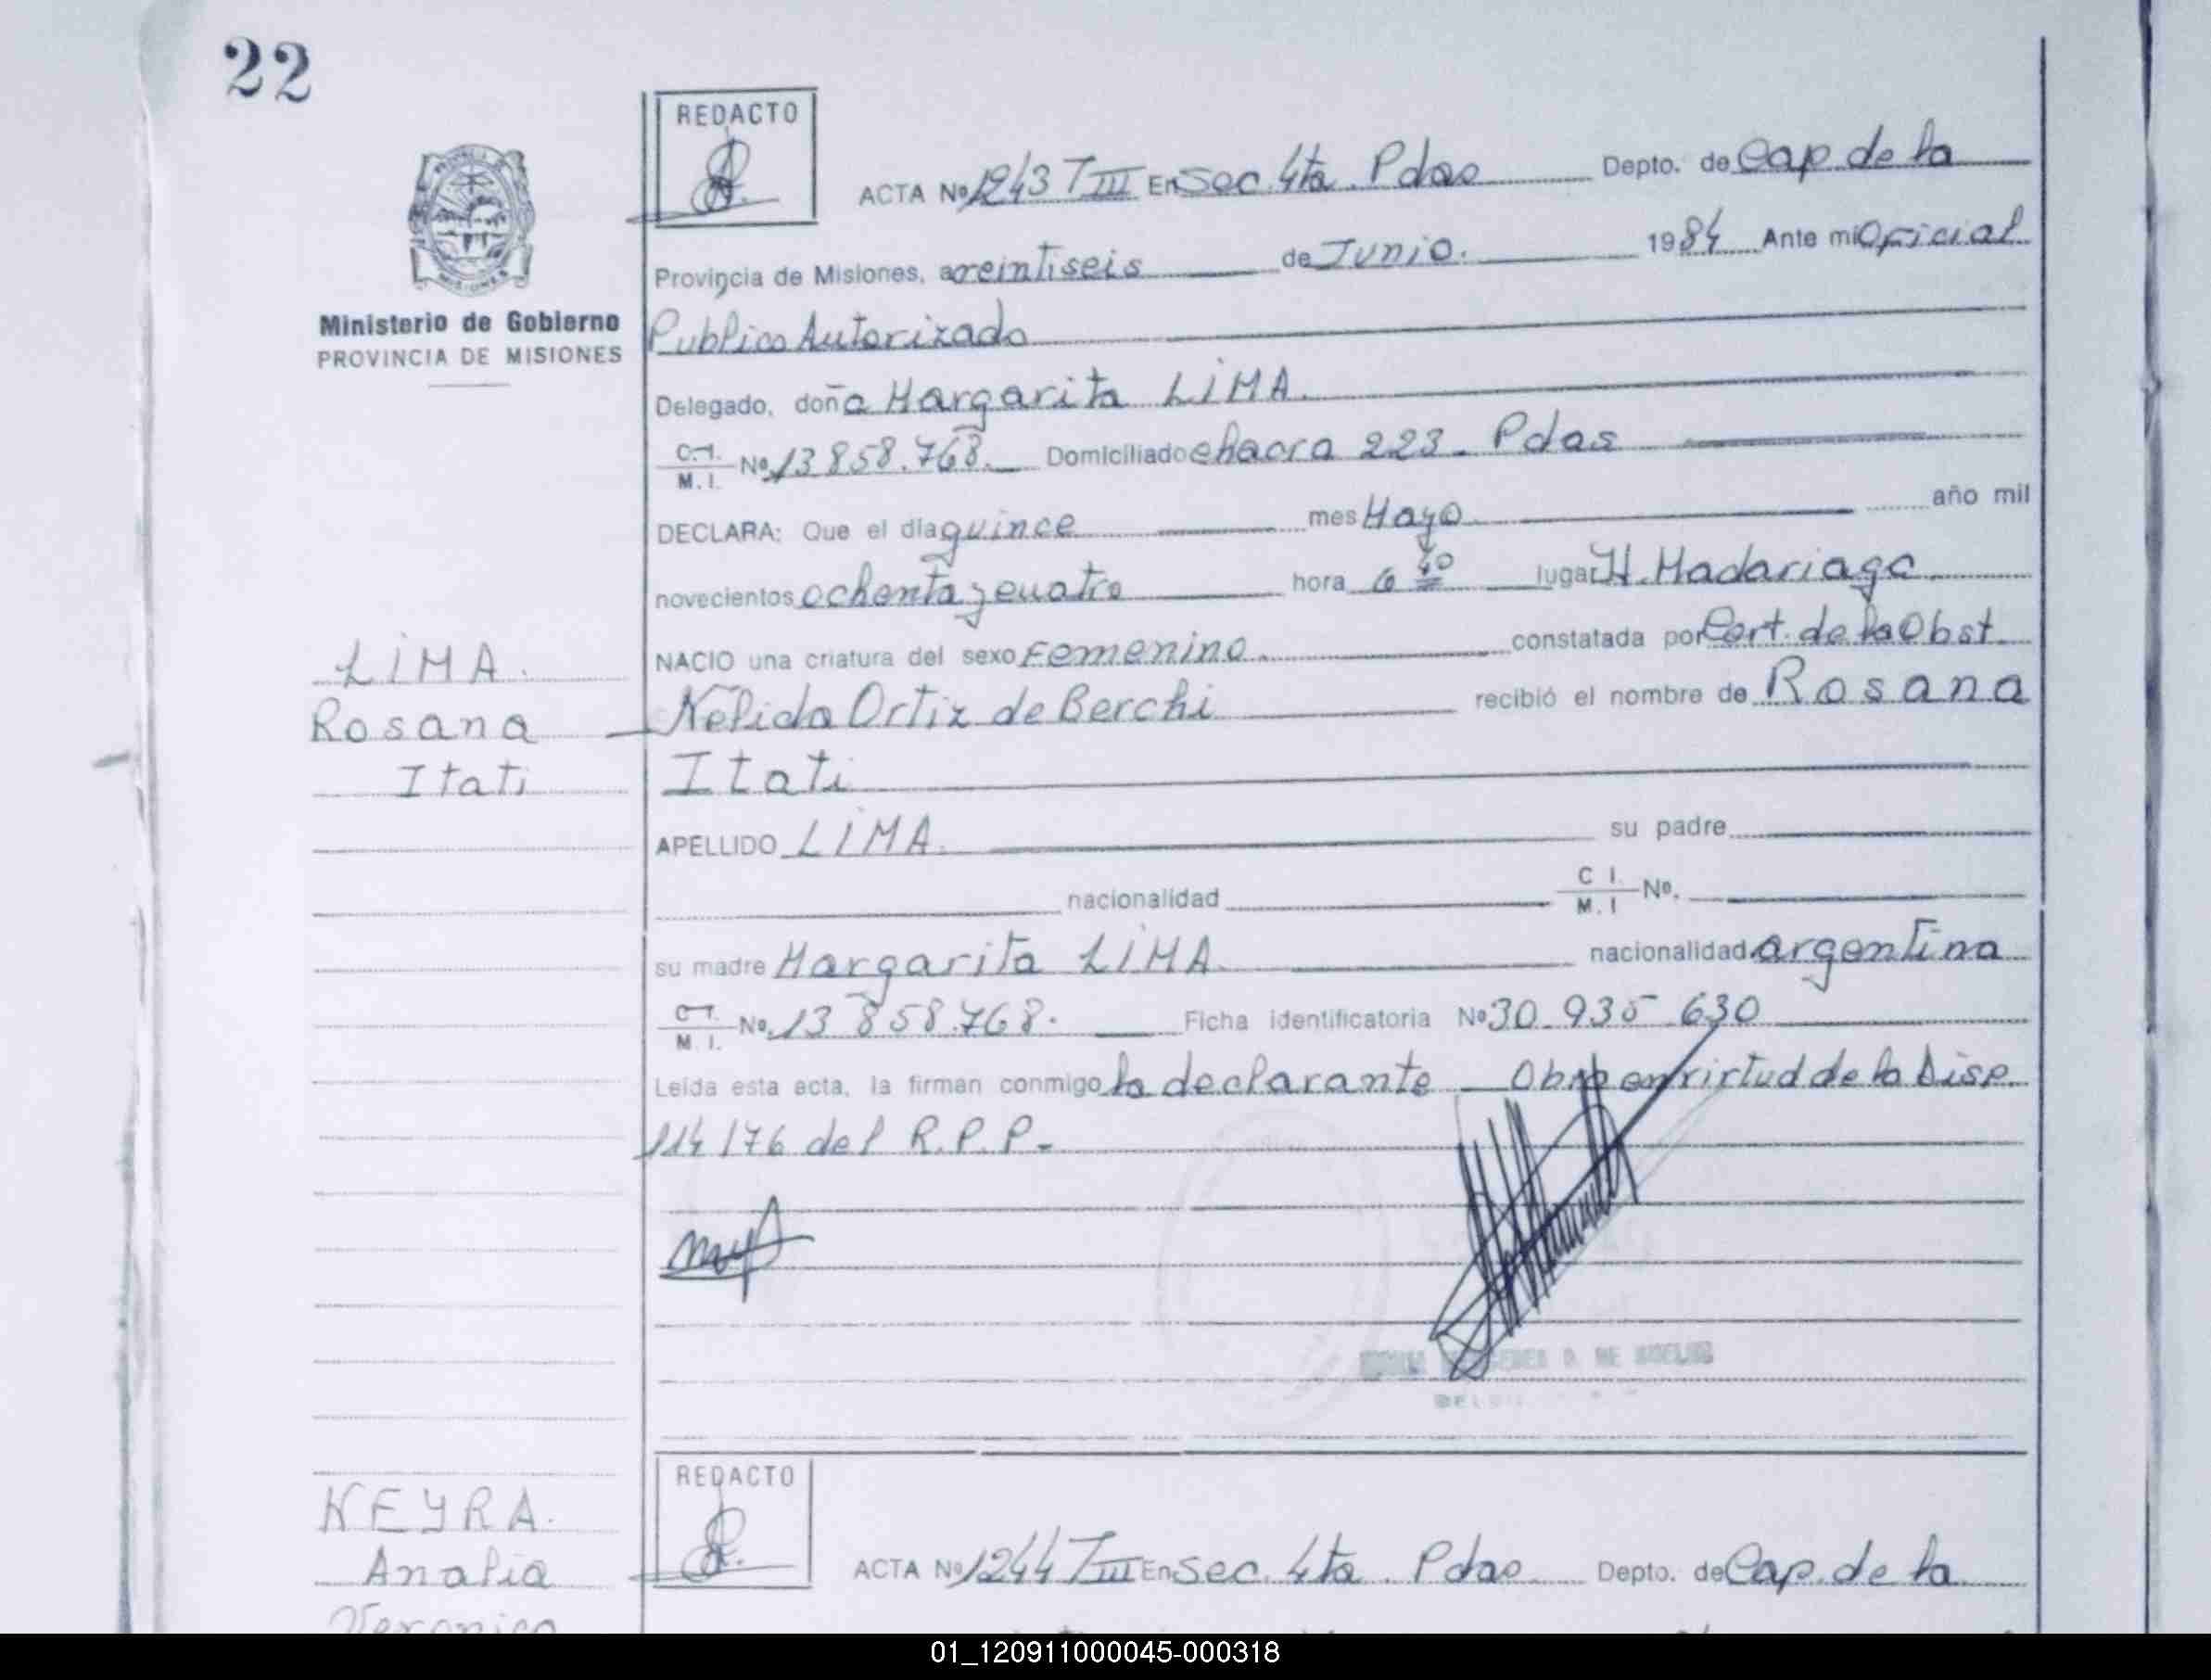 22
REDACTO
ACTA Nº 1243 T III En Sec. 4ta. Pdas Depto. de Cap. de la
Provincia de Misiones, a veintiseis de Junio. 1984 Ante mi Oficial
Ministerio de Gobierno
PROVINCIA DE MISIONES
Publico Autorizado
Delegado, doña Margarita LIMA.
C.I.
M.I. Nº 13 858.768. Domiciliado chacra 223. Pdas
DECLARA: Que el día quince mes Mayo año mil
novecientos ochenta y cuatro hora 6 40 lugar H. Madariaga
NACIO una criatura del sexo Femenino constatada por Cert. de la Obst.
Nélida Ortiz de Berchi recibió el nombre de Rosana
Itati
LIMA.
Rosana
Itati
APELLIDO LIMA. su padre
nacionalidad C I.
M.I Nº.
su madre Margarita LIMA nacionalidad argentina
C.I.
M.I. Nº. 13 858.768. Ficha identificatoria Nº 30.935 630
Leida esta acta, la firman conmigo la declarante Obro en virtud de la Disp.
114/76 del R.P.P.
REDACTO
NEYRA.
Analia
Veronica
ACTA Nº 1244 T III En Sec. 4ta. Pdas Depto. de Cap. de la
01_120911000045-000318